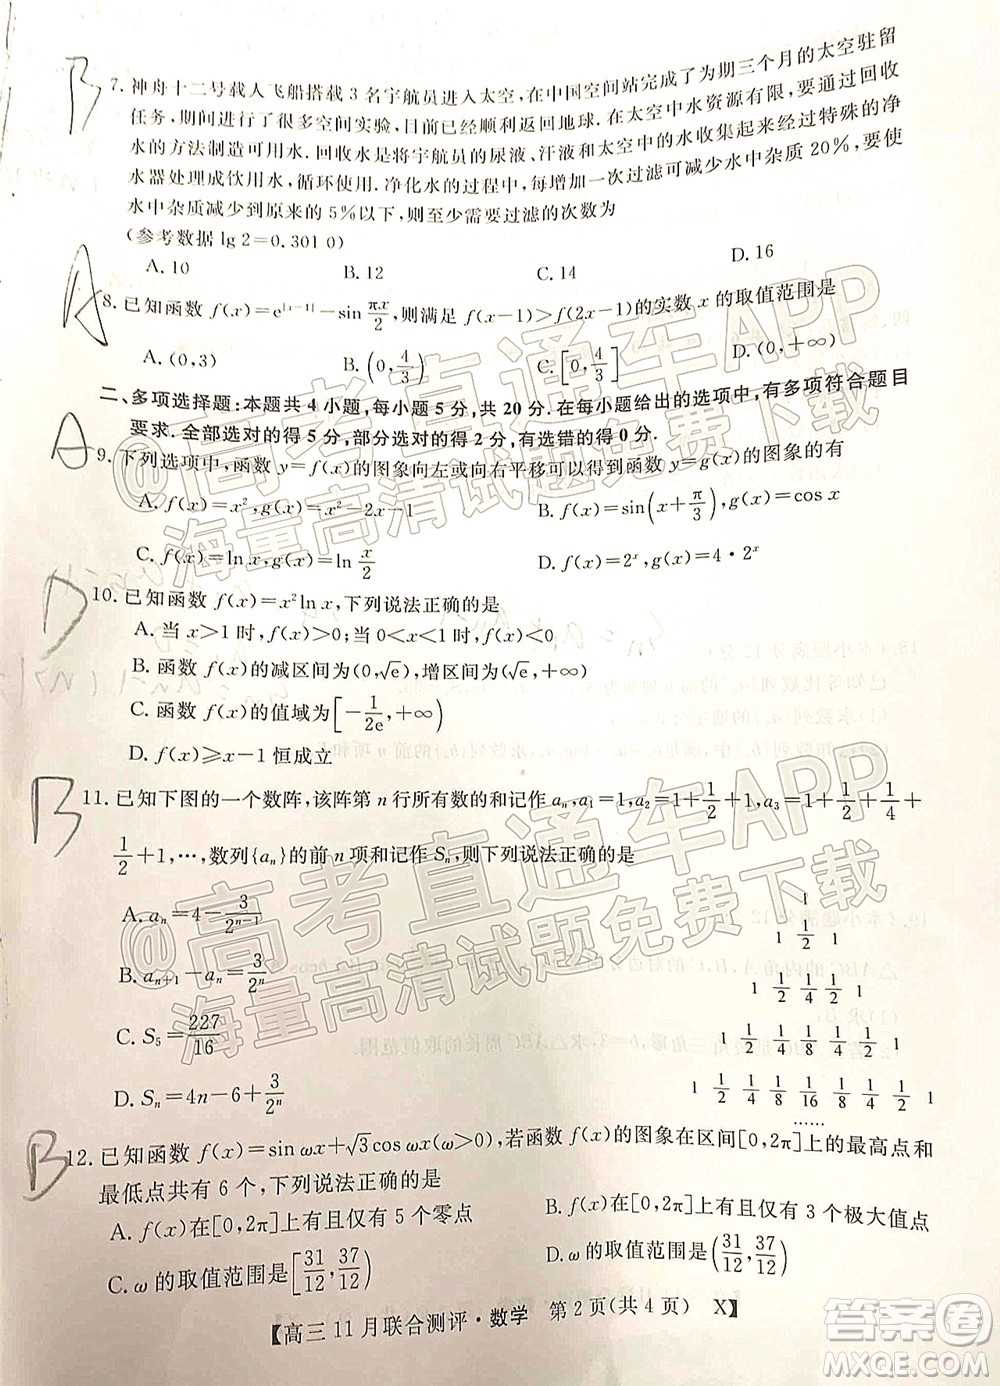 B
7. 神舟十二号载人飞船搭载3名宇航员进入太空,在中国空间站完成了为期三个月的太空驻留
任务,期间进行了很多空间实验,目前已经顺利返回地球.在太空中水资源有限,要通过回收
水的方法制造可用水.回收水是将宇航员的尿液、汗液和太空中的水收集起来经过特殊的净
水器处理成饮用水,循环使用.净化水的过程中,每增加一次过滤可减少水中杂质20%,要使
水中杂质减少到原来的5%以下,则至少需要过滤的次数为
(参考数据lg 2=0.301 0)
A. 10 B. 12 C. 14 D. 16
A
8. 已知函数 f(x)=e^{|x-1|}-sin\frac{πx}{2},则满足 f(x-1)>f(2x-1)的实数 x 的取值范围是
A. (0,3) B. (0,\frac{4}{3}) C. [0,\frac{4}{3}] D. (0,+∞)
二、多项选择题:本题共4小题,每小题5分,共20分.在每小题给出的选项中,有多项符合题目
要求.全部选对的得5分,部分选对的得2分,有选错的得0分.
A
9. 下列选项中,函数 y=f(x)的图象向左或向右平移可以得到函数 y=g(x)的图象的有
A. f(x)=x²,g(x)=x²-2x-1 B. f(x)=sin(x+\frac{π}{3}),g(x)=cos x
C. f(x)=ln x,g(x)=ln\frac{x}{2} D. f(x)=2^x,g(x)=4·2^x
D
10. 已知函数 f(x)=x²ln x,下列说法正确的是
A. 当 x>1 时,f(x)>0;当 0<x<1 时,f(x)<0
B. 函数 f(x)的减区间为(0,√e),增区间为(√e,+∞)
C. 函数 f(x)的值域为[-\frac{1}{2e},+∞)
D. f(x)≥x-1 恒成立
B
11. 已知下图的一个数阵,该阵第 n 行所有数的和记作 a_n,a_1=1,a_2=1+\frac{1}{2}+1,a_3=1+\frac{1}{2}+\frac{1}{4}+
\frac{1}{2}+1,…,数列{a_n}的前 n 项和记作 S_n,则下列说法正确的是
A. a_n=4-\frac{3}{2^{n-1}}
B. a_{n+1}-a_n=\frac{3}{2^n}
C. S_5=\frac{227}{16}
D. S_n=4n-6+\frac{3}{2^n}
1
1 \frac{1}{2} 1
1 \frac{1}{2} \frac{1}{4} \frac{1}{2} 1
1 \frac{1}{2} \frac{1}{4} \frac{1}{8} \frac{1}{4} \frac{1}{2} 1
1 \frac{1}{2} \frac{1}{4} \frac{1}{8} \frac{1}{16} \frac{1}{8} \frac{1}{4} \frac{1}{2} 1
……
B
12. 已知函数 f(x)=sin ωx+√3cos ωx(ω>0),若函数 f(x)的图象在区间[0,2π]上的最高点和
最低点共有 6 个,下列说法正确的是
A. f(x)在[0,2π]上有且仅有 5 个零点 B. f(x)在[0,2π]上有且仅有 3 个极大值点
C. ω 的取值范围是[\frac{31}{12},\frac{37}{12}) D. ω 的取值范围是(\frac{31}{12},\frac{37}{12})
【高三 11 月联合测评·数学 第 2 页(共 4 页) X】
@高考直通车APP
海量高清试题免费下载
@高考直通车APP
海量高清试题免费下载
答案圈
MXQE.COM